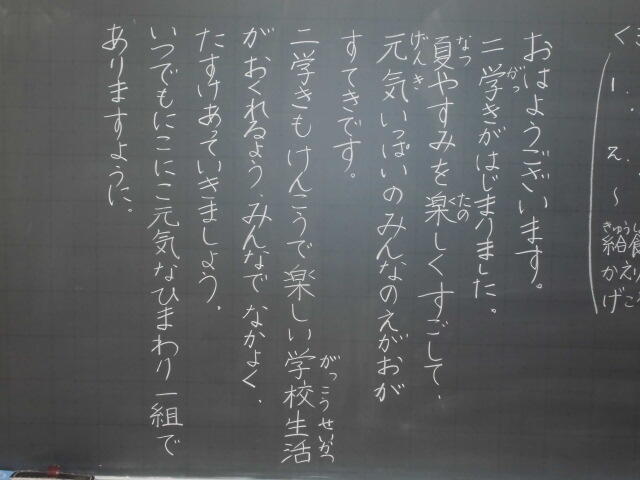 くさ
1.
2.
～
きゅうし
給食
かえり
げこ
おはようございます。
二学きがはじまりました。
がっ
夏やすみを楽しくすごして、
なつ
たの
元気いっぱいのみんなのえがおが
げんき
すてきです。
二学きもけんこうで楽しい学校生活
がっこうせいかつ
がおくれるよう、みんなで なかよく、
たすけあっていきましょう。
いつでもにこにこ元気なひまわり一組で
ありますように。